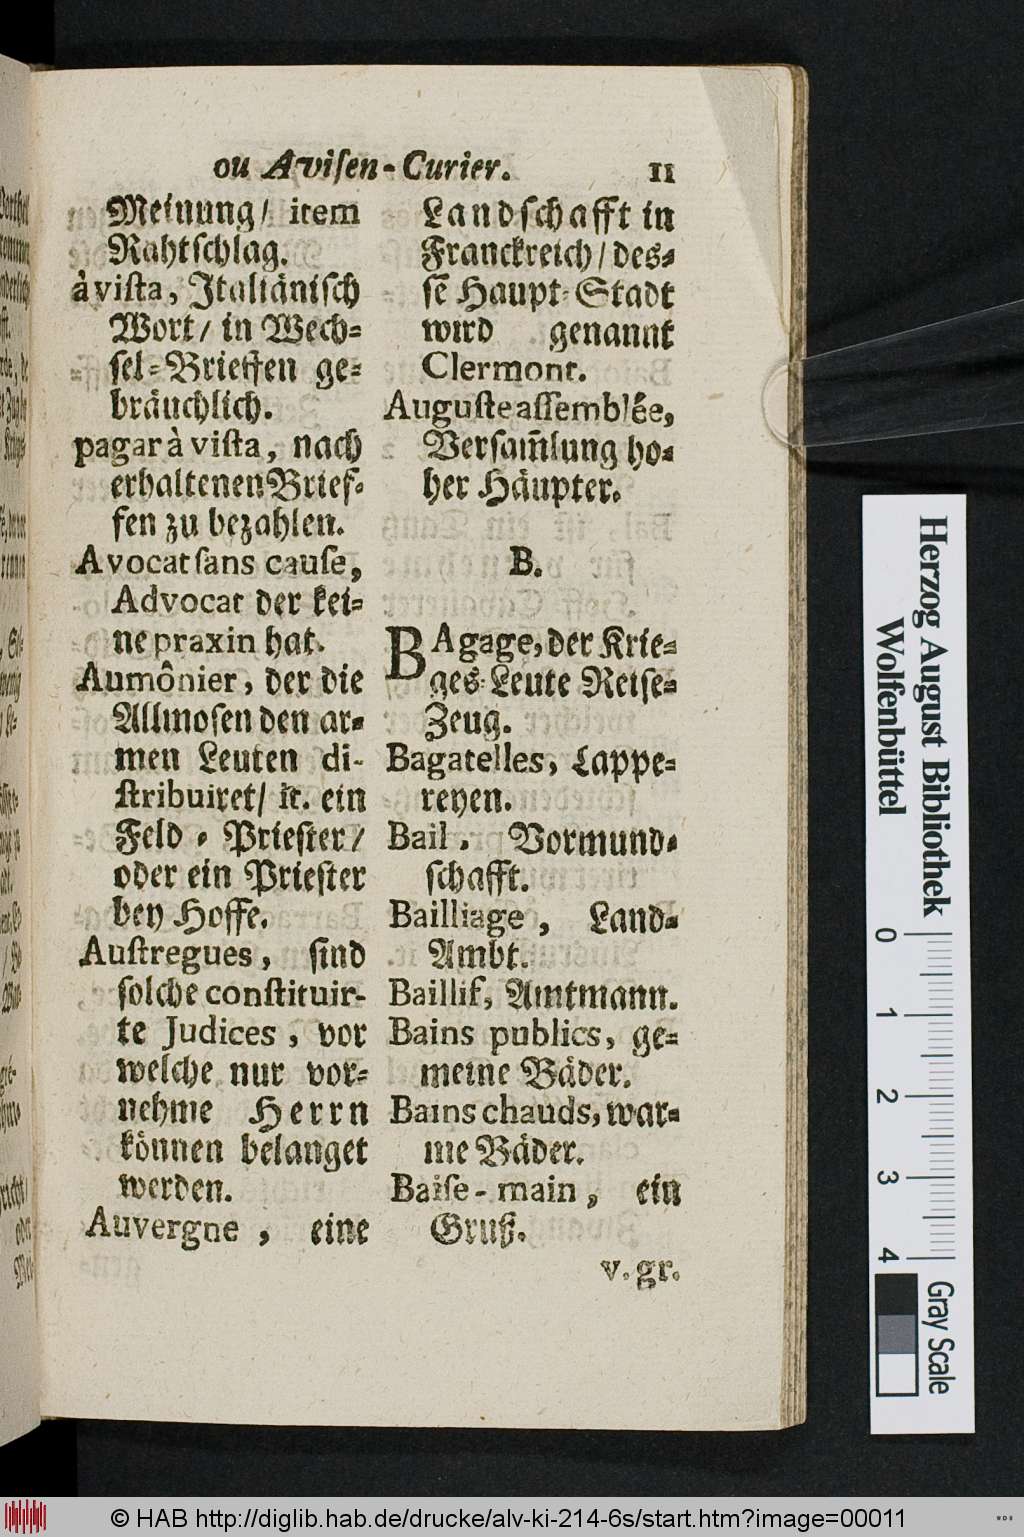 ou Aviſen-Curier. 11
Meinung/ item
Rahtſchlag.
à viſta, Italiäniſch
Wort/ in Wech-
ſel-Brieffen ge-
bräuchlich.
pagar à viſta, nach
erhaltenen Brief-
fen zu bezahlen.
Avocat ſans cauſe,
Advocat der kei-
ne praxin hat.
Aumônier, der die
Allmoſen den ar-
men Leuten di-
ſtribuiret/ it. ein
Feld-Prieſter/
oder ein Prieſter
bey Hoffe.
Auſtregues, ſind
ſolche conſtituir-
te Judices, vor
welche nur vor-
nehme Herrn
können belanget
werden.
Auvergne, eine
Landſchafft in
Franckreich/ deſ-
ſẽ Haupt-Stadt
wird genannt
Clermont.
Auguſte aſſemblée,
Verſam̃lung ho-
her Häupter.
B.
BAgage, der Krie-
ges-Leute Reiſe-
Zeug.
Bagatelles, Lappe-
reyen.
Bail, Vormund-
ſchafft.
Bailliage, Land-
Ambt.
Baillif, Amtmann.
Bains publics, ge-
meine Bäder.
Bains chauds, war-
me Bäder.
Baiſe-main, ein
Gruß.
v. gr.
Herzog August Bibliothek
Wolfenbüttel
0 1 2 3 4
Gray Scale
© HAB http://diglib.hab.de/drucke/alv-ki-214-6s/start.htm?image=00011